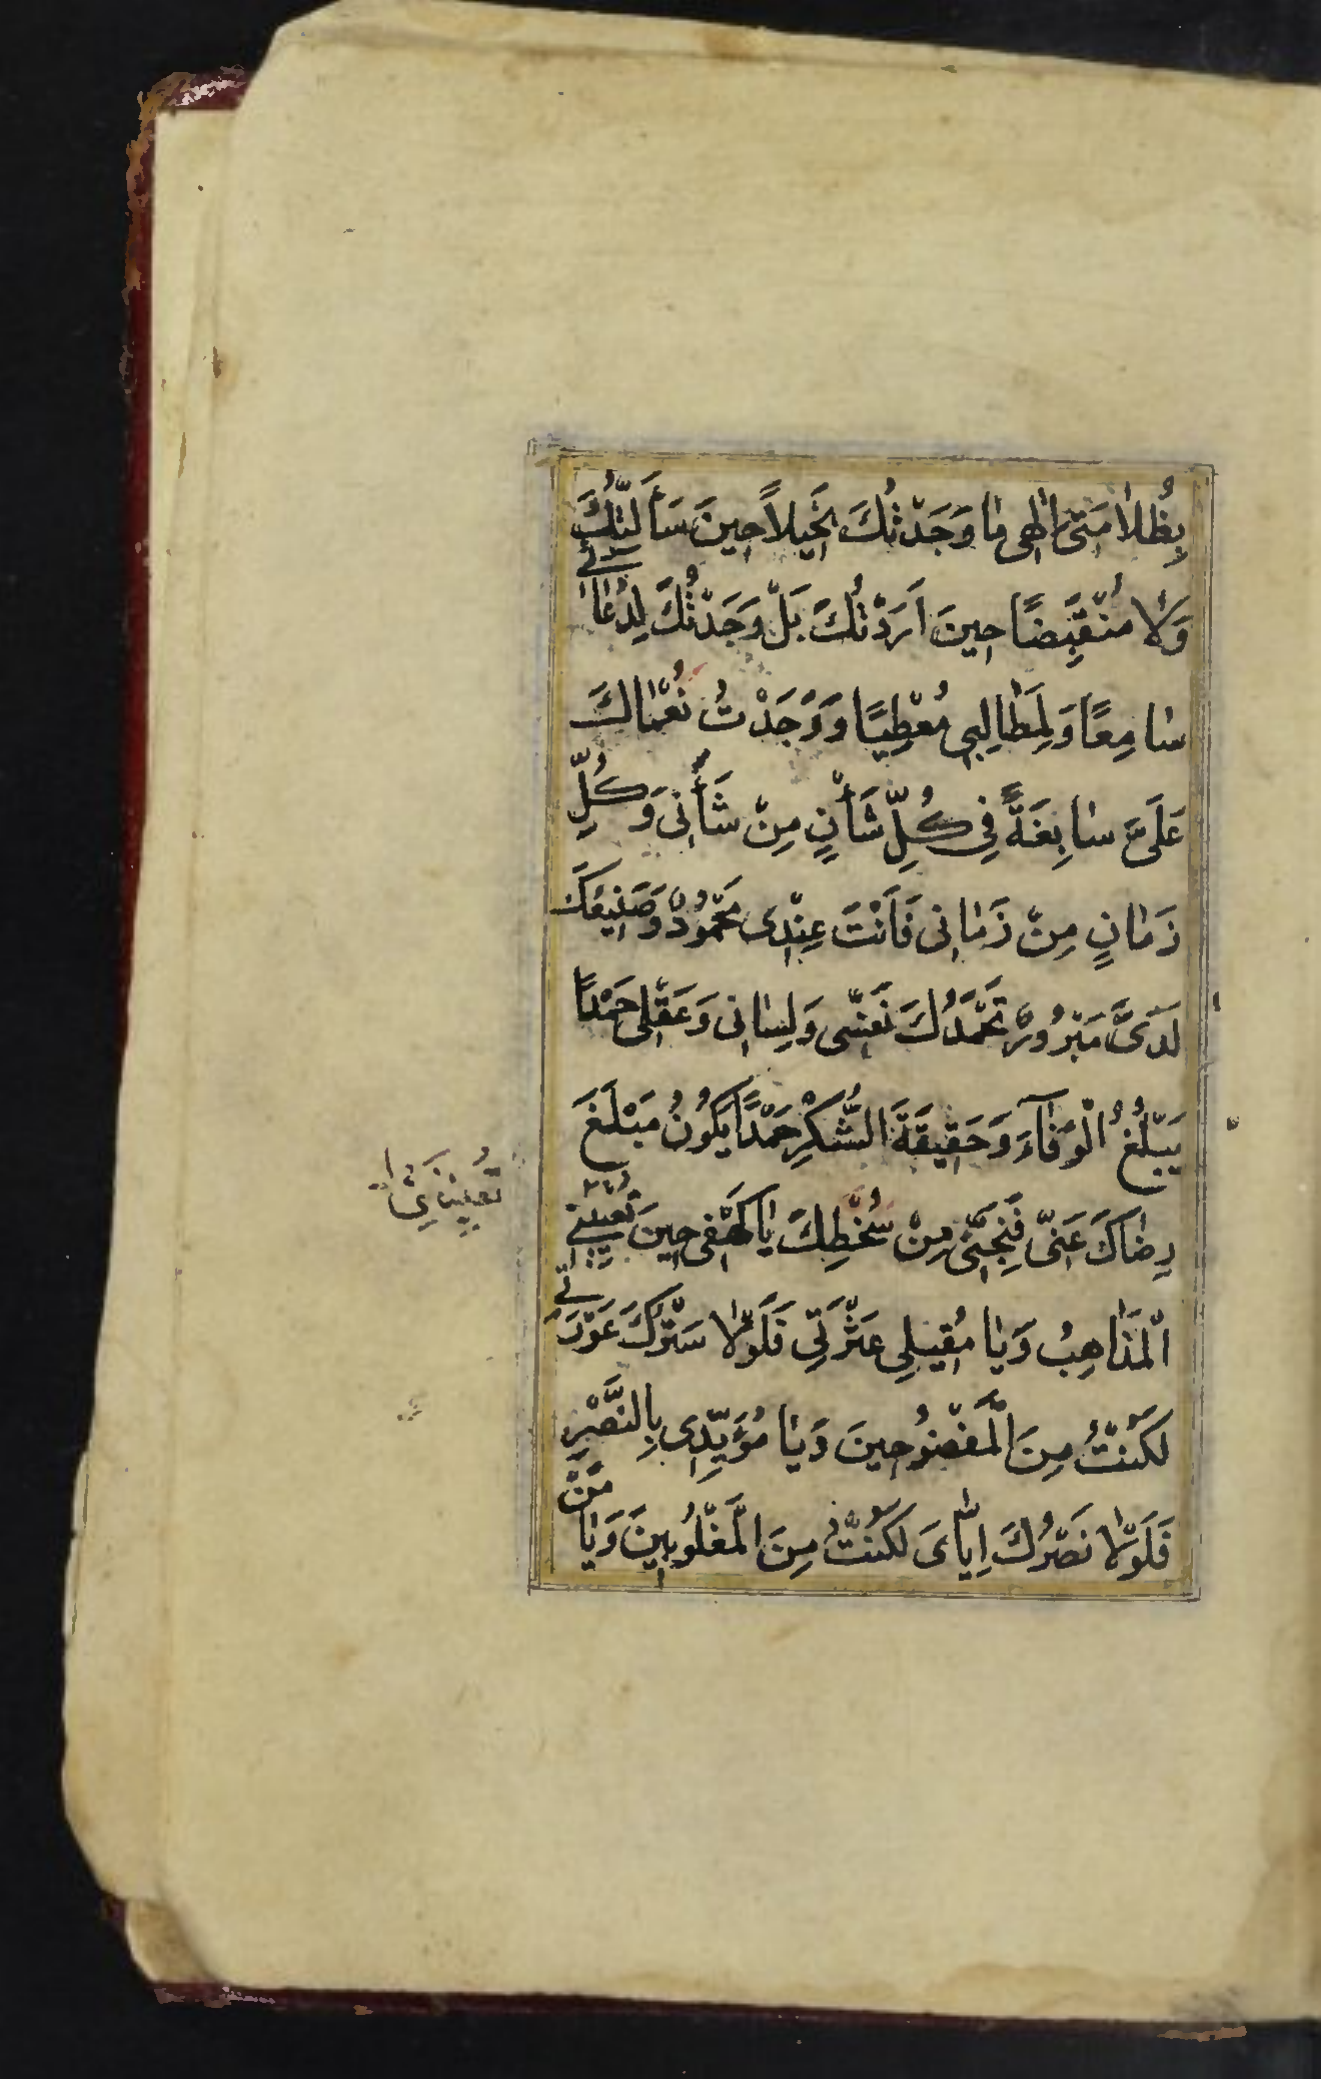 بِظُلاٰمَتىٖ اِلٰهىٖ مٰا وَجَدْتُكَ بَخيٖلاً حيٖنَ سَأَلْتُكَ
وَلاٰ مُنْقَبِضًا حيٖنَ اَرَدْتُكَ بَلْ وَجَدْتُكَ لِدُعٰائىٖ
سٰامِعًا وَلِمَطٰالِبىٖ مُعْطِيًا وَوَجَدْتُ نُعْمٰاكَ
عَلَىَّ سٰابِغَةً فىٖ كُلِّ شَأْنٍ مِنْ شَأْنىٖ وَكُلِّ
زَمٰانٍ مِنْ زَمٰانىٖ فَاَنْتَ عِنْدىٖ مَحْمُودٌ وَصَنيٖعُكَ
لَدَىَّ مَبْرُورٌ تَحْمَدُكَ نَفْسىٖ وَلِسٰانىٖ وَعَقْلىٖ حَمْدًا
يَبْلُغُ الْوَفٰآءَ وَحَقيٖقَةَ الشُّكْرِ حَمْدًا يَكُونُ مَبْلَغَ
رِضٰاكَ عَنّىٖ فَنَجِّنىٖ مِنْ سُخْطِكَ يٰا كَهْفىٖ حيٖنَ تُعْييٖنىٖ
الْمَذٰاهِبُ وَيٰا مُقيٖلىٖ عَثْرَتىٖ فَلَوْلاٰ سَتْرُكَ عَوْرَتىٖ
لَكُنْتُ مِنَ الْمَفْضُوحيٖنَ وَيٰا مُؤَيِّدىٖ بِالنَّصْرِ
فَلَوْلاٰ نَصْرُكَ اِيّٰاىَ لَكُنْتُ مِنَ الْمَغْلُوبيٖنَ وَيٰا مَنْ